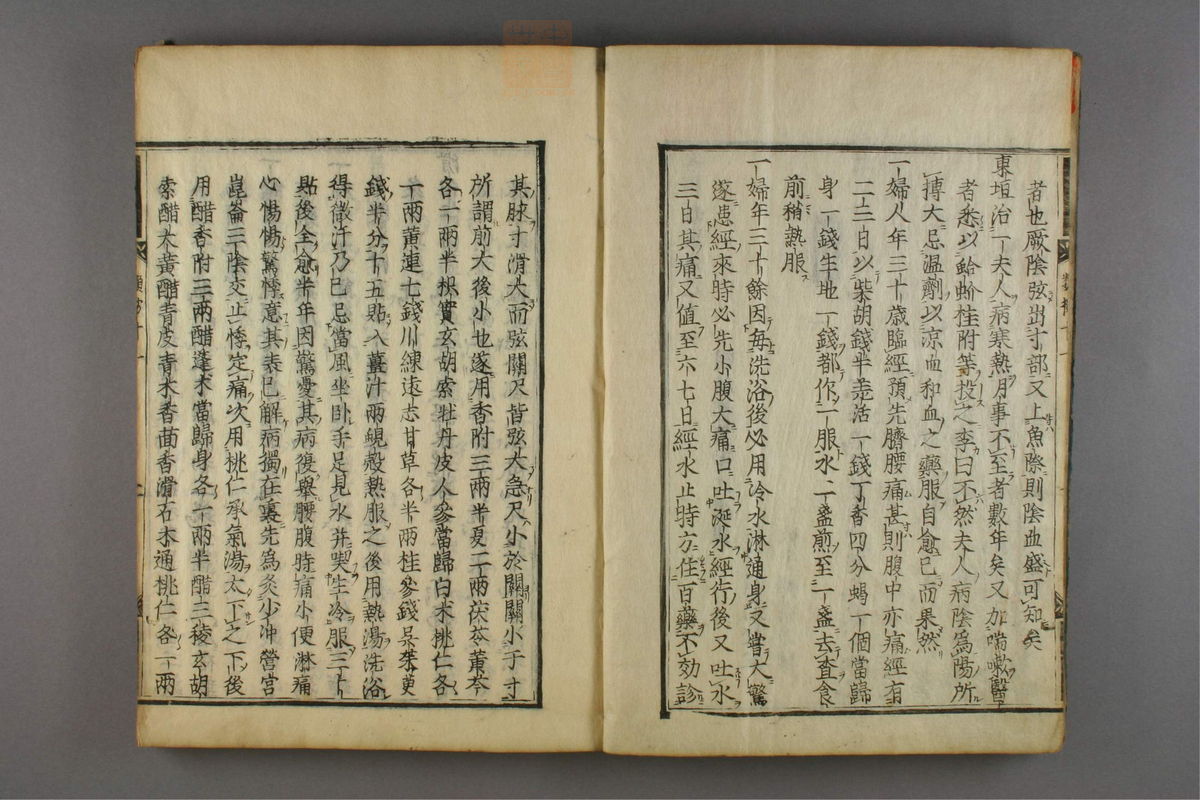 者也厥陰弦出寸部又上魚際則陰血盛可知矣
東垣治一夫人病寒熱月事不至者數年矣又加喘嗽醫
者悉以蛤蚧桂附等投之李曰不然夫人病陰為陽所
搏大忌温劑以凉血和血之藥服自愈已而果然
一婦人年三十歲臨經預先臍腰痛甚則腹中亦痛經有
二三日以柴胡錢半羌活一錢丁香四分蝎一個當歸
身一錢生地一錢都作一服水二盞煎至一盞去查食
前稍熱服
一婦年三十餘因每洗浴後必用冷水淋通身又嘗大驚
遂患經來時必先小腹大痛口吐涎水經行後又吐水
三日其痛又值至六七日經水止時方住百藥不効診
其脉寸滑大而弦關尺皆弦大急尺小於關關小于寸
所謂前大後小也遂用香附三兩半夏二兩茯苓黄芩
各一兩半枳實玄胡索牡丹皮人參當歸白朮桃仁各
一兩黄連七錢川練遠志甘草各半兩桂參錢呉茱萸
錢半分十五貼入薑汁兩蜆殻熱服之後用熱湯洗浴
得微汗乃已忌當風坐臥手足見水并喫生冷服三十
貼後全愈半年因驚憂其病復舉腰腹時痛小便淋痛
心惕惕驚悸意其表已解病獨在裏先為灸少冲勞宮
崑崙三陰交止悸定痛次用桃仁承氣湯大下之下後
用醋香附三兩醋蓬朮當歸身各一兩半醋三稜玄胡
索醋大黄醋青皮青木香茴香滑石木通桃仁各一兩